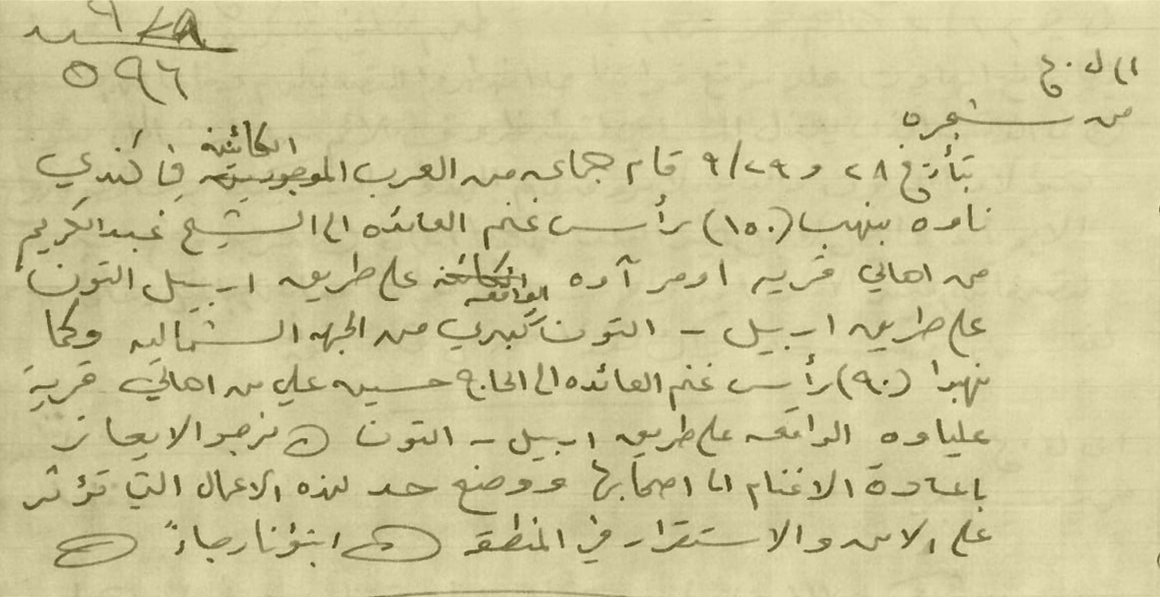 ٥٩٦
الى ل.ج
من شجره
الكائنة
بتأريخ ٢٨ و ٢٩/٩ قام جماعه من العرب الموجودين في كندي
ناوه بنهب (١٥٠) رأس غنم العائده الى الشيخ عبدالكريم
من اهالي قريه اومر آوه الكائنة على طريق اربيل التون
الواقعه
على طريق اربيل - التون كبري من الجهه الشماليه وكما
نهبوا (٩٠) رأس غنم العائده الى الحاج حسين علي من اهالي قرية
علياوه الواقعه على طريق اربيل - التون نرجو الايعاز
باعادة الاغنام الى اصحابها ووضع حد لهذه الاعمال التي تؤثر
على الامن والاستقرار في المنطقه انبؤنا رجاءً